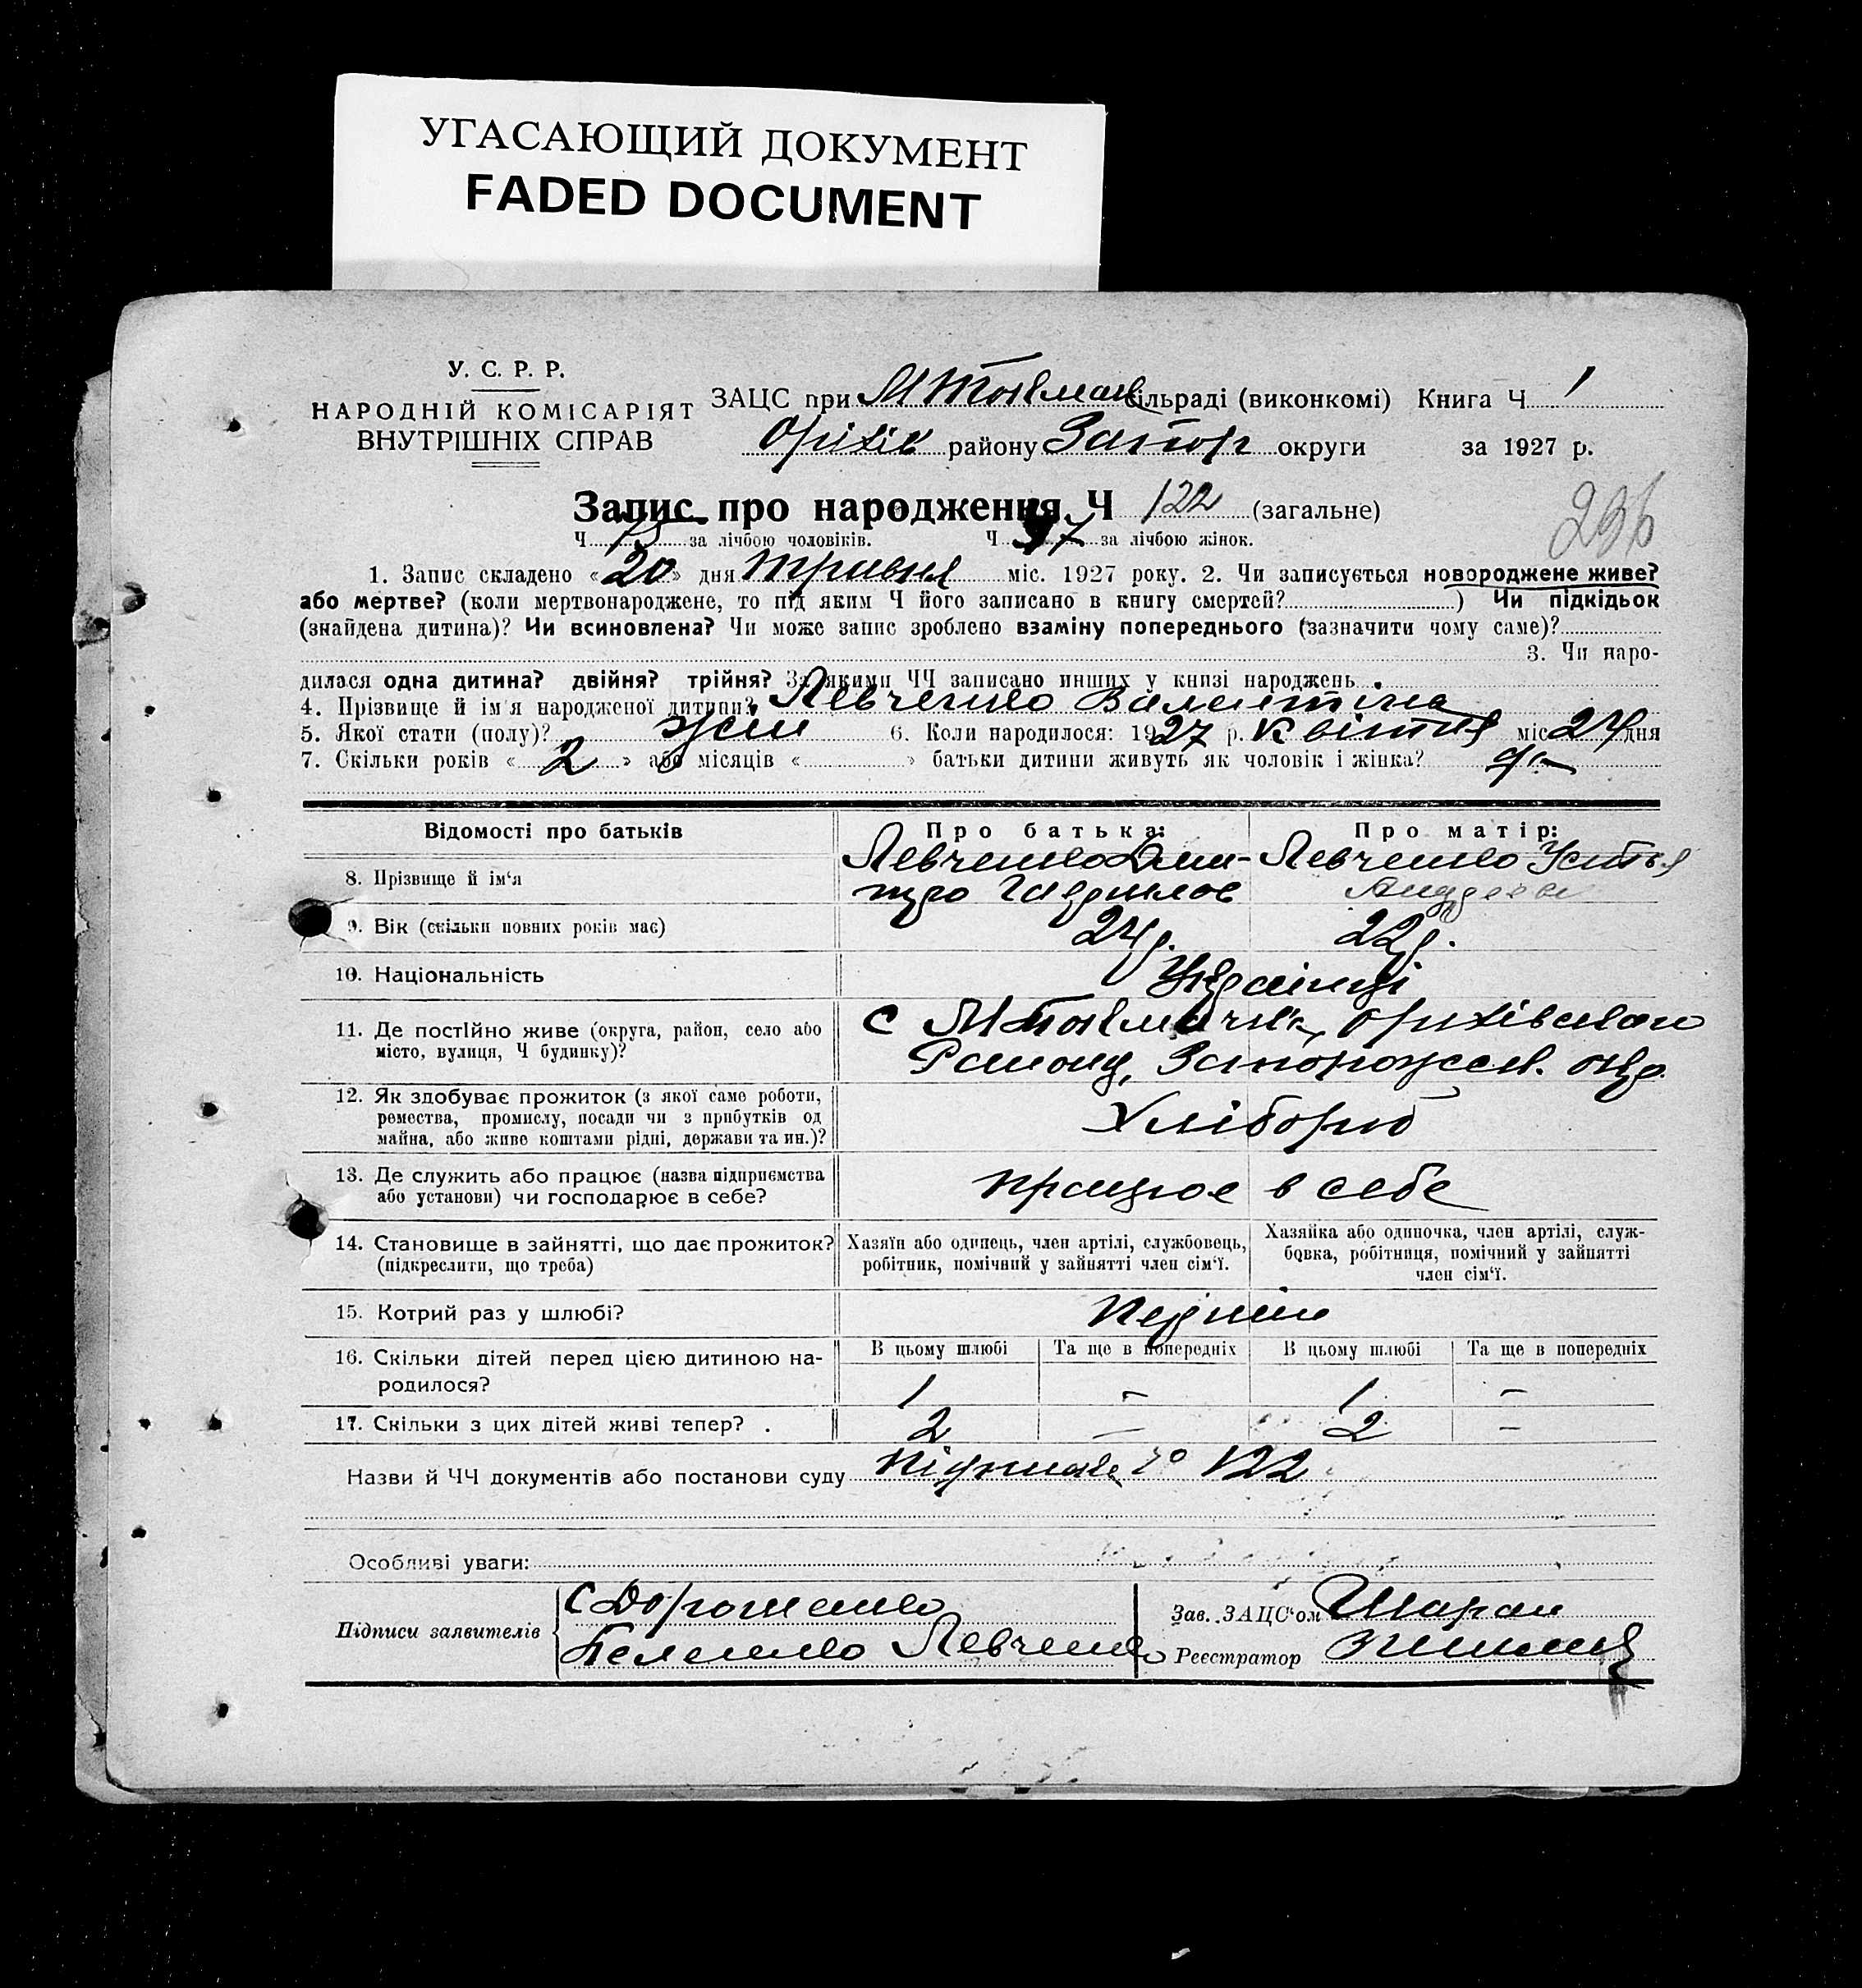 УГАСАЮЩИЙ ДОКУМЕНТ
FADED DOCUMENT
У. С. Р. Р.
НАРОДНІЙ КОМІСАРІЯТ
ВНУТРІШНІХ СПРАВ
ЗАЦС при М Токмац сільраді (виконкомі) Книга Ч 1
Оріхів району Запор округи за 1927 р.
Запис про народження Ч 122 (загальне)
236
Ч 75 за лічбою чоловіків. Ч 47 за лічбою жінок.
1. Запис складено «20» дня травня міс. 1927 року. 2. Чи записується новороджене живе?
або мертве? (коли мертвонароджене, то під яким Ч його записано в книгу смертей? ) Чи підкідьок
(знайдена дитина)? Чи всиновлена? Чи може запис зроблено взаміну попереднього (зазначити чому саме)?
3. Чи наро-
дилася одна дитина? двійня? трійня? За якими ЧЧ записано инших у книзі народжень
4. Прізвище й ім'я народженої дитини? Левченко Валентіна
5. Якої стати (полу)? жін 6. Коли народилося: 1927 р. Квітня міс 24 дня
7. Скільки років «2» або місяців « » батьки дитини живуть як чоловік і жінка?
Відомості про батьків Про батька: Про матір:
8. Прізвище й ім'я Левченко Дми- Левченко Устья
тро Гаврилов Андреева
9. Вік (скільки повних років має) 24 р. 22 р.
10. Національність Українці
11. Де постійно живе (округа, район, село або
місто, вулиця, Ч будинку)?
с М Токмачка, Оріхівського
Району, Запорожськ. окр.
12. Як здобуває прожиток (з якої саме роботи,
ремества, промислу, посади чи з прибутків од
майна, або живе коштами рідні, держави та ин.)?
Хлібороб
13. Де служить або працює (назва підприємства
або установи) чи господарює в себе?
працює в себе
14. Становище в зайнятті, що дає прожиток?
(підкреслити, що треба)
Хазяїн або одинець, член артілі, службовець,
робітник, помічний у зайнятті член сім'ї.
Хазяйка або одиночка, член артілі, служ-
бовка, робітниця, помічний у зайнятті
член сім'ї.
15. Котрий раз у шлюбі? Первий
16. Скільки дітей перед цією дитиною на-
родилося?
В цьому шлюбі Та ще в попередніх В цьому шлюбі Та ще в попередніх
1 – 1 –
17. Скільки з цих дітей живі тепер? . 2 – 2 –
Назви й ЧЧ документів або постанови суду 122
Особливі уваги:
Підписи заявителів
С Дорошенко
Левченко
Зав. ЗАЦС'ом Шаран
Реєстратор